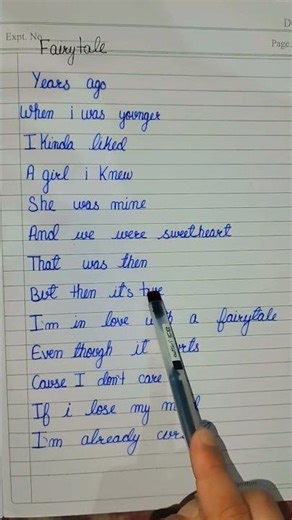 D
Expt. No.
Page.
Fairytale
Years ago
When i was younger
I Kinda liked
A girl i Knew
She was mine
And we were sweetheart
That was then
But then it's true
I'm in love with a fairytale
Even though it
Cause I don't care
If i lose my
I'm already